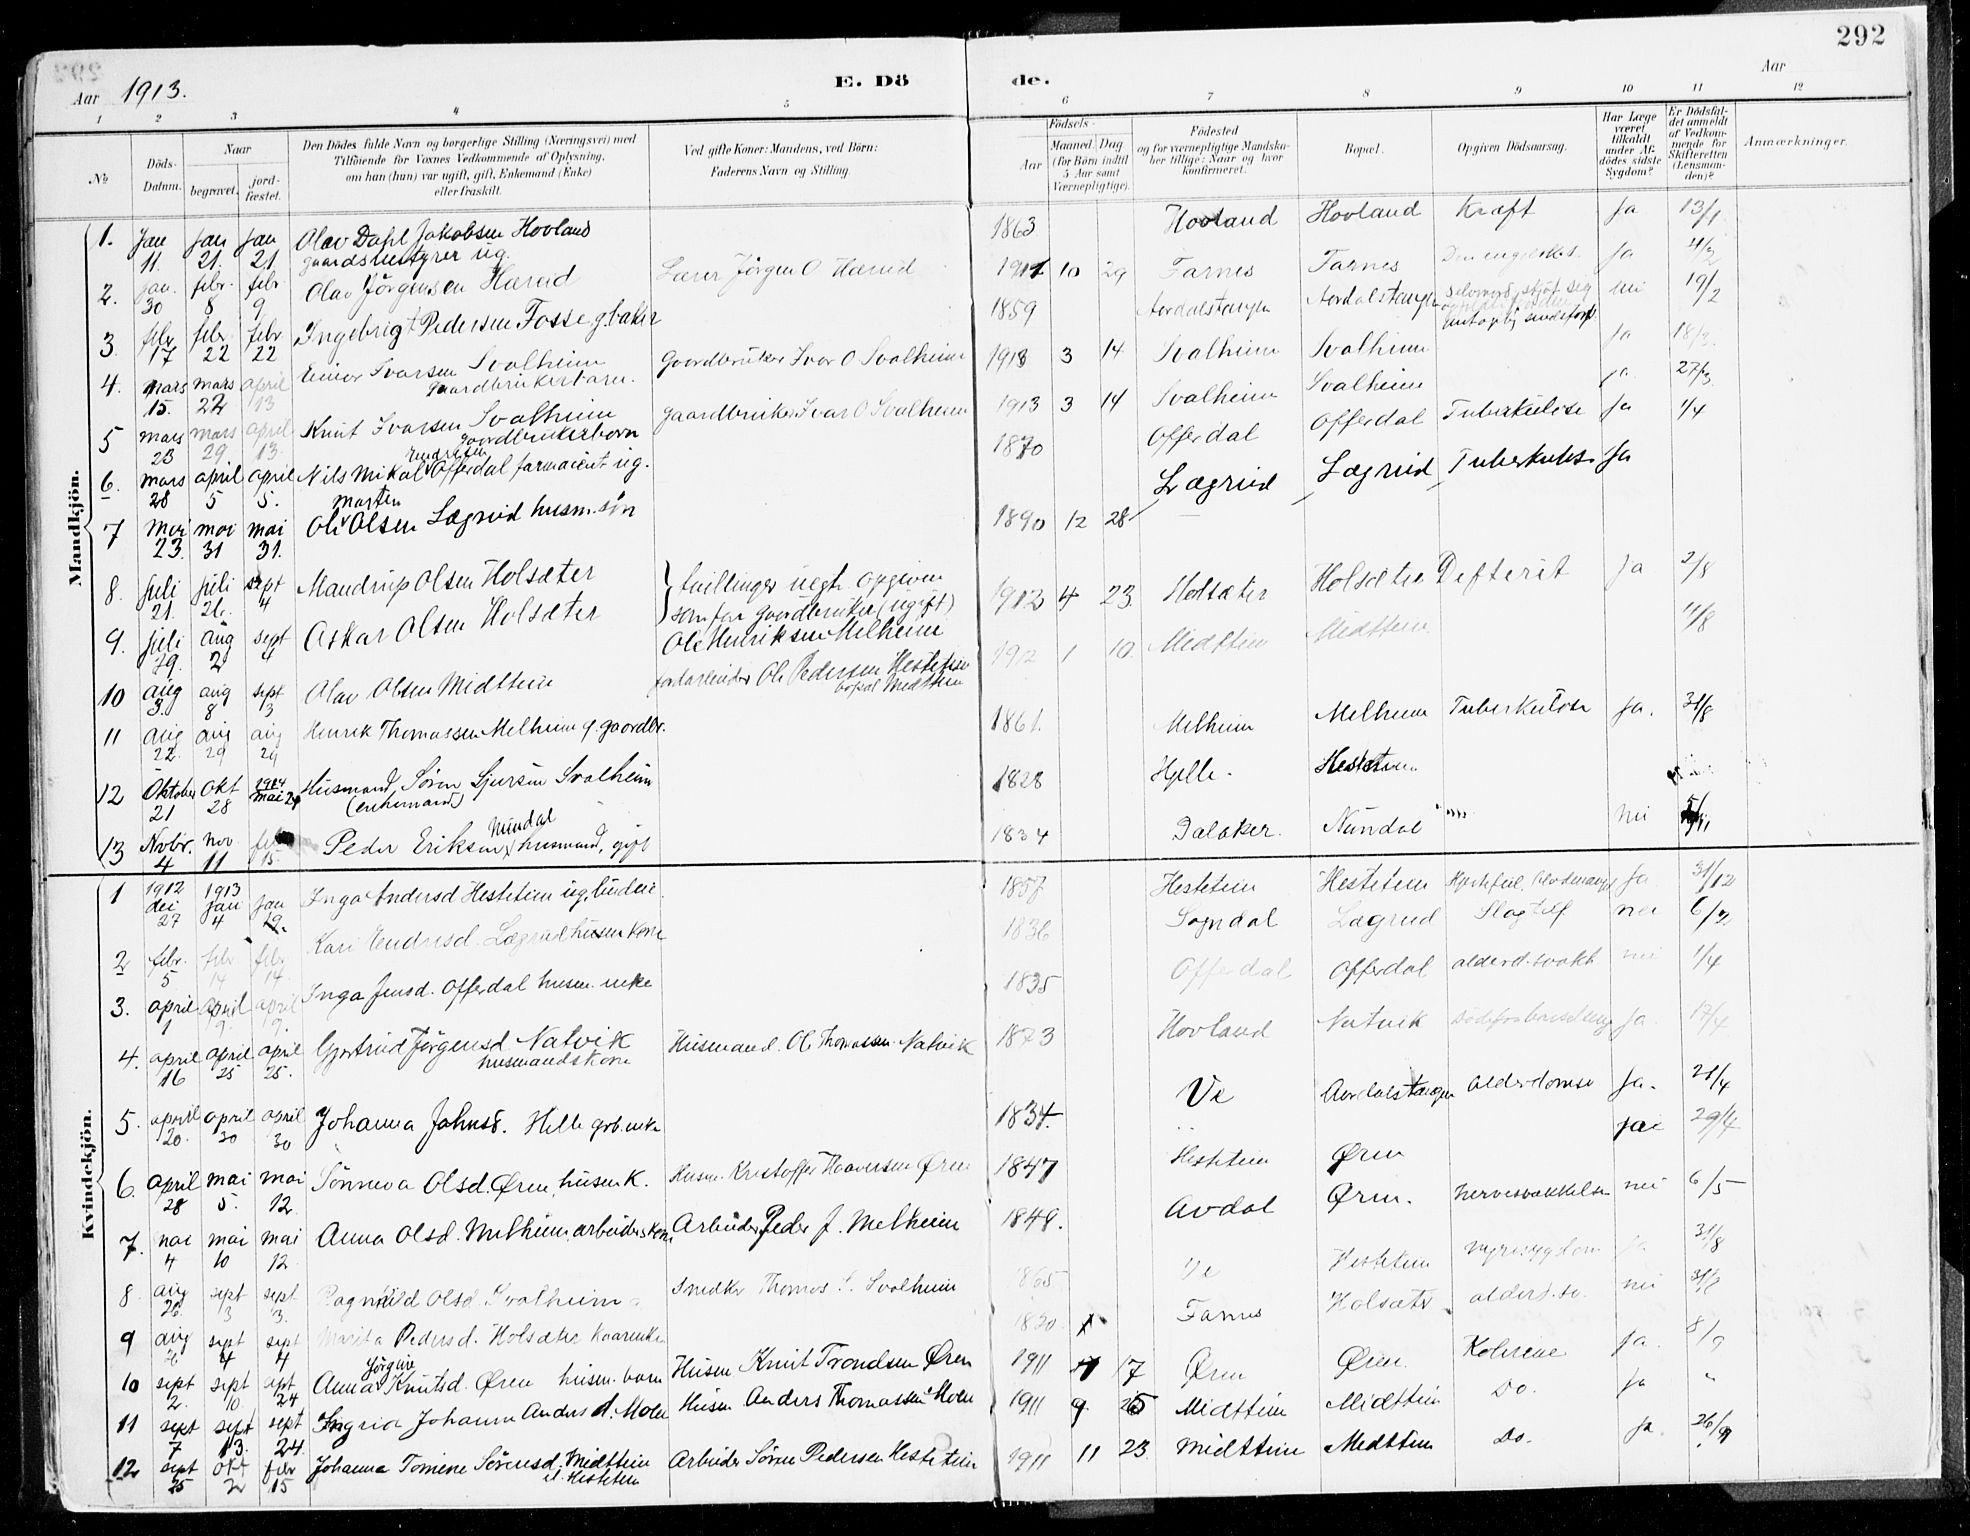 292
Aar 1913. E. Dö de. Aar
1 2 3 4 5 6 7 8 9 10 11 12
№ Döds-Datum. Naar begravet. jord-fæstet. Den Dödes fulde Navn og borgerlige Stilling (Næringsvei) med Tilföiende for Voxnes Vedkommende af Oplysning, om han (hun) var ugift, gift, Enkemand (Enke) eller fraskilt. Ved gifte Koner: Mandens, ved Börn: Faderens Navn og Stilling. Födsels- Aar Maaned. Dag (for Börn indtil 5 Aar samt Værnepligtige). Födested og for værnepligtige Mandskaber tillige: Naar og hvor konfirmeret. Bopæl. Opgiven Dödsaarsag. Har Læge været tilkaldt under Afdödes sidste Sygdom? Er Dödsfaldet anmeldt af Vedkommende for Skifteretten (Lensmanden)? Anmærkninger.
Mandkjön.
1. Jan 11. Jan 21. Jan 21 Olav Dahl Jakobsen Hovland 1863 Hovland Hovland Kræft Ja 13/1
gaardsbestyrer ug.
2. jan. 30 febr. 8 febr. 9 Olav Jörgensen Hæreid Lærer Jörgen O Hæreid 10 29 Farnes Farnes Ja
3 febr 17 febr. 22 febr 22 Ingebrigt Pedersen Fosse, g. baker 1859 Aardalstangen Aardalstangen nei 19/2
4. mars 15. mars 22 april 13 Einar Ivarsen Svalheim Gaardbruker Ivar O Svalheim 1913 3 14 Svalheim Svalheim Ja 18/3
gaardbrukerbarn.
5 mars 23 mars 29 april 13. Knut Ivarsen Svalheim gaardbruker Ivar O Svalheim 1913 3 14 Svalheim Svalheim ja 27/3
gaardbrukerbarn
6. mars 28 april 5 april 5. Nils Mikal Endresen Offerdal farmaceut ug. 1870 Offerdal Offerdal Tuberkulose Ja 1/4
7 mai 23. mai 31 mai 31. Ole Marten Olsen Lægreid husm. sön 1890 12 28 Lægreid Lægreid Tuberkulose Ja
8. juli 21. juli 26. sept 4 Mandrup Olsen Holsæter tvillinger uegte opgiven 1912 4 23. Holsæter Holsæter Difterit Ja 2/8
9. juli 29. aug 2 sept 4 Oskar Olsen Holsæter som far gaardbruker (ugift) Ole Henriksen Melheim
10 aug 3. aug 8 sept 3 Olav Olsen Midttun Ole Pedersen Hestetun bopæl Midttun 1912 1 10. Midttun Midttun 4/8
11 aug 22. aug 29 aug 29 Henrik Thomassen Melheim g. gaardbr. 1861. Melheim Melheim Tuberkulose Ja. 31/8
12 Oktober 21 Okt 28 1914 mai 24 Husmand Sören Sjursen Svalheim 1828 Hjelle. Hestetun
(enkemand)
13 Novbr. 4 nov. 11 febr 15. Peder Eriksen Nundal husmand, gift 1834 Dalaker. Nundal nei 5/11
Kvindekjön.
1 1912 dei 27 1913 jan 4 jan 12. Inga Andersd Hestetun ug. 1857 Hestetun Hestetun Hjertefeil, Ja 31/12
2 febr. 5 febr 14 febr 14. Kari Endresd. Lægreid husm kone 1836 Sogndal Lægreid Slagtilf nei 6/2
3. april 1 april 9. april 9. Inga Jensd. Offerdal husm. enke 1835 Offerdal Offerdal alderd. svakh nei 1/4
4. april 16 april 25 april 25. Gjertrud Jörgensd Natvik Husmand. Ole Thomassen Natvik 1873 Hovland Natvik Ja 17/4
husmandskone
5. april 20. april 30 april 30 Johanna Johnsd. Helle grb. enke 1834. Ve Aardalstangen Alderdomsv Ja. 21/4
6. april 28 mai 5. mai 12. Sönneva Olsd. Øren, husm k. Husm. Kristoffer Haaversen Øren 1847 Hestetun Øren jai 29/4
7. mai 4 mai 10 mai 12. Anna Olsd. Melheim, arbeiderskone Arbeider Peder J. Melheim 1849. Avdal Øren. nervesvækkelse nei 6/5
8. aug 26. sept 3 sept. 3. Ragnhild Olsd. Svalheim Snedker Thomas Svalheim 1865 Ve Hestetun nyresygdom Ja 31/8
9 aug sept 4 sept 4 Marita Pedersd. Holsæter 1820 Farnes Holsæter alderd. sv. nei 31/8
10 sept 2. sept 10 sept 24 Anna Jörgine Knutsd. Øren husm. barn Husm Knut Trondsen Øren 1911 17 Øren Øren. Kolerine Ja. 8/9
11 sept 7 sept 13. sept 24. Ingrid Johanne Andersd. Moen Husm Anders Thomassen Moen 1911 9. 25 Midttun Midttun Do. Ja "
12. sept 25 okt 2 febr 15 Johanna Tomine Sörensd. Midttun Arbeider Sören Pedersen Hestetun 1911 11 23. Midttun Midttun Do. Ja. 26/9
el. Hestetun